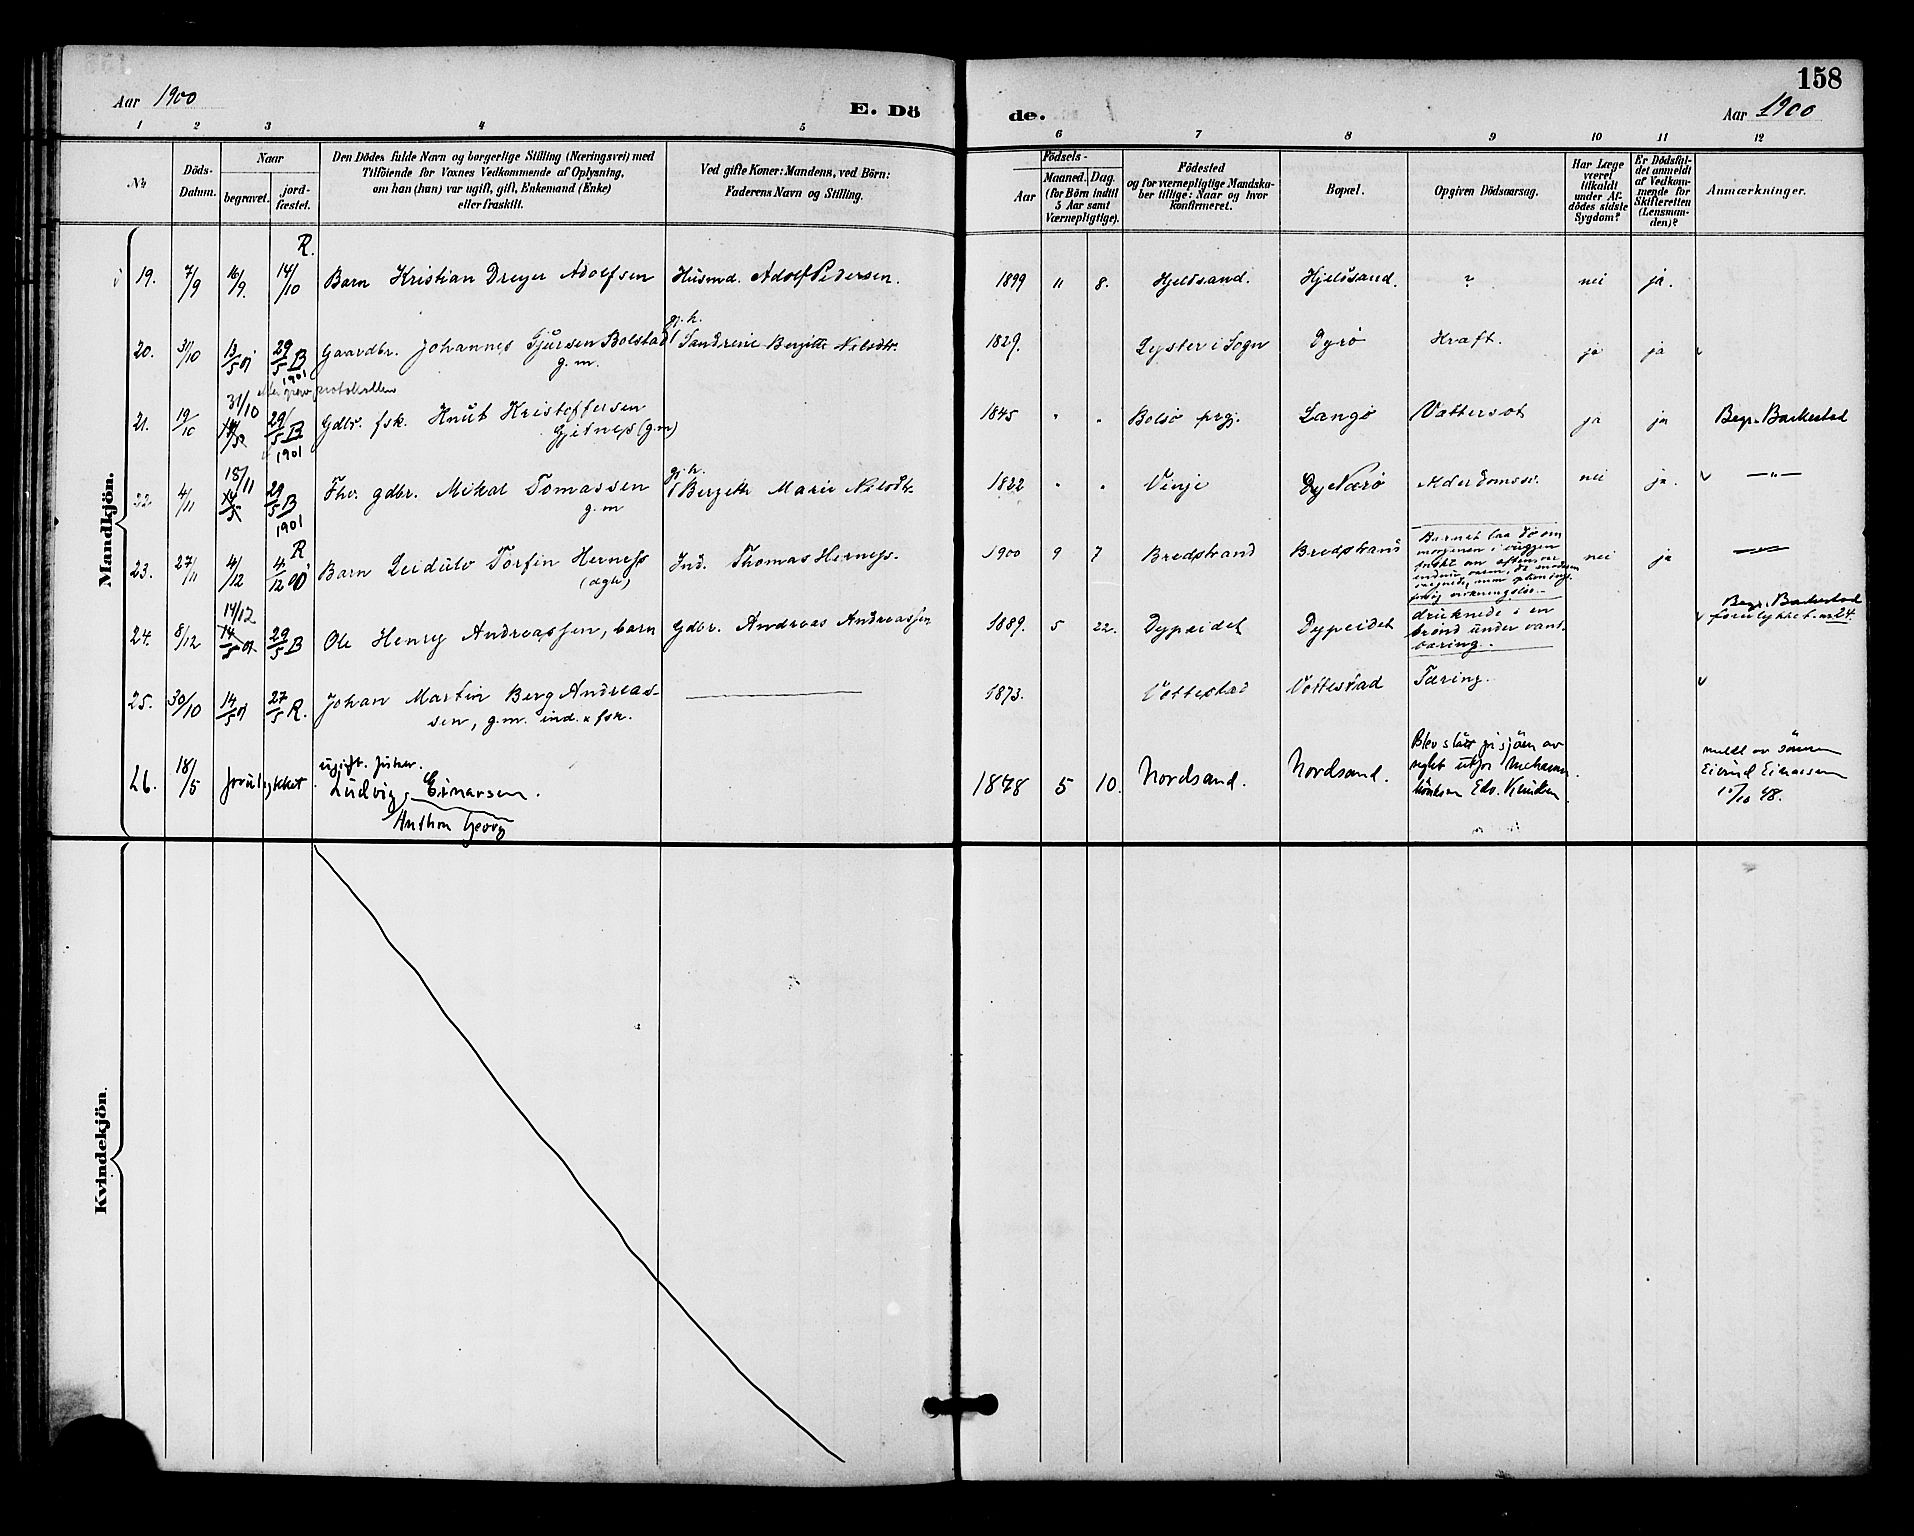 158
Aar 1900
E. Dö
de.
Aar 1900
1 2 3 4 5 6 7 8 9 10 11 12
No.
Döds-Datum.
Naar
begravet.
jord-fæstet.
Den Dödes fulde Navn og borgerlige Stilling (Næringsvei) med
Tilföiende for Voxnes Vedkommende af Oplysning,
om han (hun) var ugift, gift, Enkemand (Enke)
eller fraskilt.
Ved gifte Koner: Mandens, ved Börn:
Faderens Navn og Stilling.
Födsels-
Aar
Maaned. Dag.
(for Börn indtil
5 Aar samt
Værnepligtige).
Födested
og for værnepligtige Mandska-
ber tillige: Naar og hvor
konfirmeret.
Bopæl.
Opgiven Dödsaarsag.
Har Læge
været
tilkaldt
under Af-
dödes sidste
Sygdom?
Er Dödsfal-
det anmeldt
af Vedkom-
mende for
Skifteretten
(Lensman-
den)?
Anmærkninger.
Mandkjön.
R.
19. 7/9 16/9. 14/10 Barn Kristian Dreyer Adolfsen Husmd. Adolf Pedersen. 1899 11 8. Hjeldsand. Hjeldsand. ? nei ja.
gj. h.
20. 31/10 13/5 01 29/5 B 1901 Gaardbr. Johannes Gjursen Bolstad Sandrine Bergitte Nilsdtr. 1829. Lyster i Sogn Dyrö Kræft. ja ja
g. m.
31/10
21. 19/10 14/5 29/5 B 1901 Gdbr. fsk. Knut Kristoffersen 1845 " " Bolsö prgj. Langö Vattersot ja ja Begr. Barkestad
Gjitness (g.m)
18/11 gj. h.
22 4/11 14/5 29/5 B 1901 Fhv. gdbr. Mikal Tomassen Bergitte Marie Nilsdtr. 1822 " " Vinje Alderdomssv. nei ja. — " —
g. m
R
23. 27/11 4/12 4/12 00 Barn Leidulv Torfin Herness Ind. Thomas Herness. 1900 9 7 Bredstrand Bredstrand nei ja
(ægte)
Barnet laa dö om
morgenen i vuggen
14/12
24. 8/12 14/5 01 29/5 B Ole Henry Andreassen, barn Gdbr. Andreas Andreassen 1889. 5 22. Dypeidet Dypeidet
druknede i en
brönd under vand-
bæring.
Begr. Barkestad
forulykket. no 24.
25. 30/10 14/5 01 27/5 R. Johan Martin Berg Andreas- 1873. Vottestad Vottestad Tæring.
sen, g.m. ind. & fsk.
26. 18/5 forulykket ugift. fisker.
Ludvig Einarsen.
Anthon Georg
1878 5 10. Nordsand. Nordsand.
Blev slått på sjöen av
seglet utfor
Edv. Knudsen.
meldt av sönnen
Eivind Einarsen
15/10 48.
Kvindekjön.